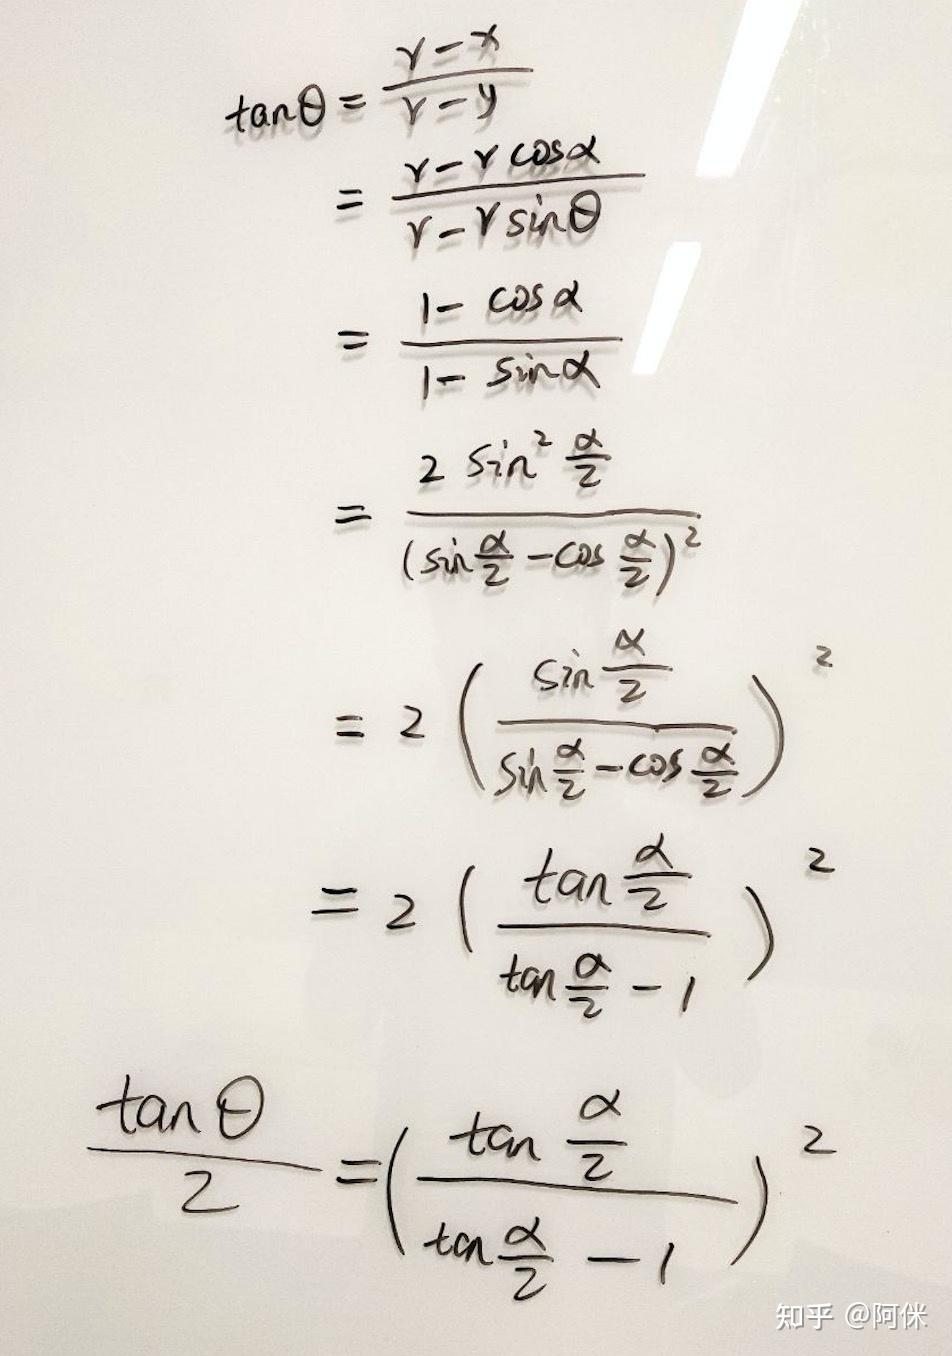 tanθ = (r - x)/(r - y)
= (r - r cosα)/(r - r sinθ)
= (1 - cosα)/(1 - sinα)
= (2 sin² α/2)/(sin α/2 - cos α/2)²
= 2 ((sin α/2)/(sin α/2 - cos α/2))²
= 2 ((tan α/2)/(tan α/2 - 1))²
tanθ/2 = ((tan α/2)/(tan α/2 - 1))²
知乎 @阿侎